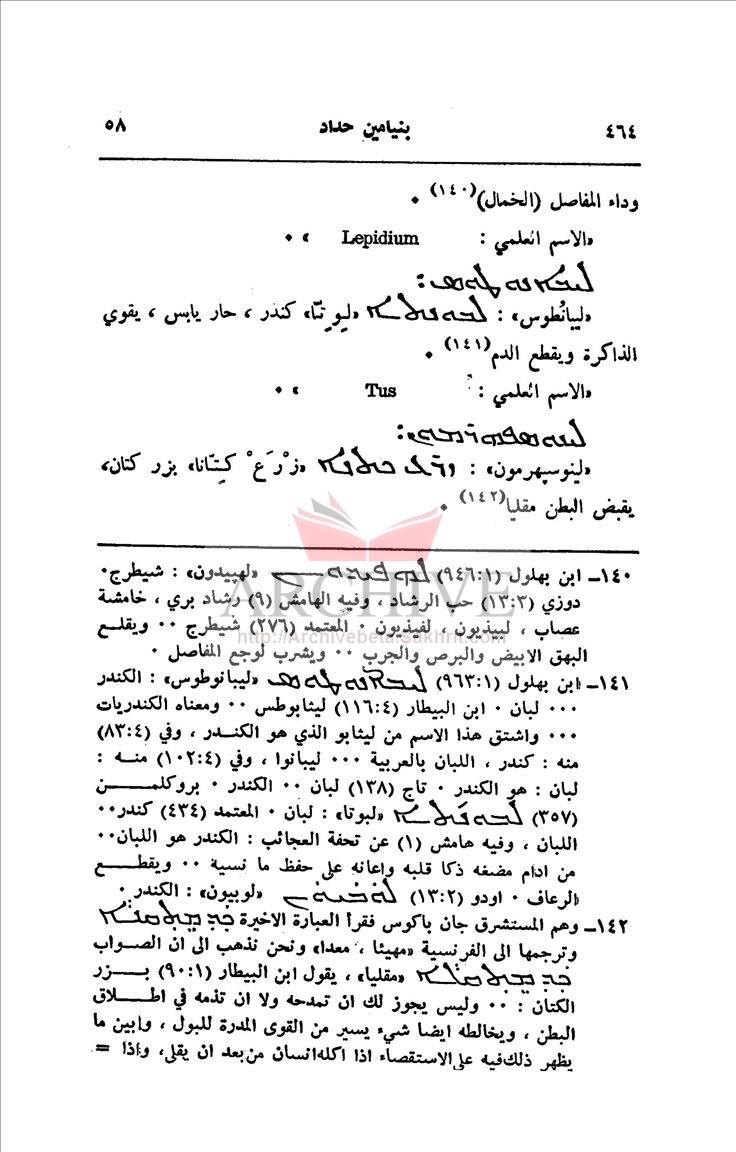 ٤٦٤ بنيامين حداد ٥٨
وداء المفاصل (الخمال)(١٤٠) ٠
«الاسم العلمي : Lepidium » ٠
«ليبانُطوس» : «لِوِتّا» كندر ، حار يابس ، يقوي
الذاكرة ويقطع الدم(١٤١) ٠
«الاسم العلمي : Tus » ٠
«لينوسپهرمون» : «زْرَعْ كِتّانا» بزر كتان،
يقبض البطن مقليا(١٤٢) ٠
١٤٠ـ ابن بهلول (٩٤٦:١) «لهپيدون» : شيطرج٠
دوزي (١٣:٣) حب الرشاد ، وفيه الهامش (٩) رشاد بري ، خامشة
عصاب ، لبيذيون ، لفيذيون ٠ المعتمد (٢٧٦) شيطرج ٠٠ ويقلع
البهق الابيض والبرص والجرب ٠٠ ويشرب لوجع المفاصل ٠
١٤١ـ ابن بهلول (٩٦٣:١) «ليبانوطوس» : الكندر
٠٠٠ لبان ٠ ابن البيطار (١١٦:٤) ليثابوطس ٠٠ ومعناه الكندريات
٠٠٠ واشتق هذا الاسم من ليثابو الذي هو الكندر ، وفي (٨٣:٤)
منه : كندر ، اللبان بالعربية ٠٠٠ ليبانوا ، وفي (١٠٢:٤) منه :
لبان : هو الكندر ٠ تاج (١٣٨) لبان ٠٠ الكندر ٠ بروكلمن
(٣٥٧) «لبوتا» : لبان ٠ المعتمد (٤٣٤) كندر٠٠
اللبان ، وفيه هامش (١) عن تحفة العجائب : الكندر هو اللبان٠٠
من ادام مضغه ذكا قلبه واعانه على حفظ ما نسية ٠٠ ويقطع
الرعاف ٠ اودو (١٣:٢) «لوبيون» : الكندر ٠
١٤٢ـ وهم المستشرق جان باكوس فقرأ العبارة الاخيرة
وترجمها الى الفرنسية «مهيئا ، معدا» ونحن نذهب الى ان الصواب
«مقليا» ، يقول ابن البيطار (٩٠:١) بزر
الكتان : ٠٠ وليس يجوز لك ان تمدحه ولا ان تذمه في اطلاق
البطن ، ويخالطه ايضا شيء يسير من القوى المدرة للبول ، وابين ما
يظهر ذلك فيه على الاستقصاء اذا اكله انسان من بعد ان يقلى، واذا =
ARCHIVE
http://Archivebeta.Sakhrit.com